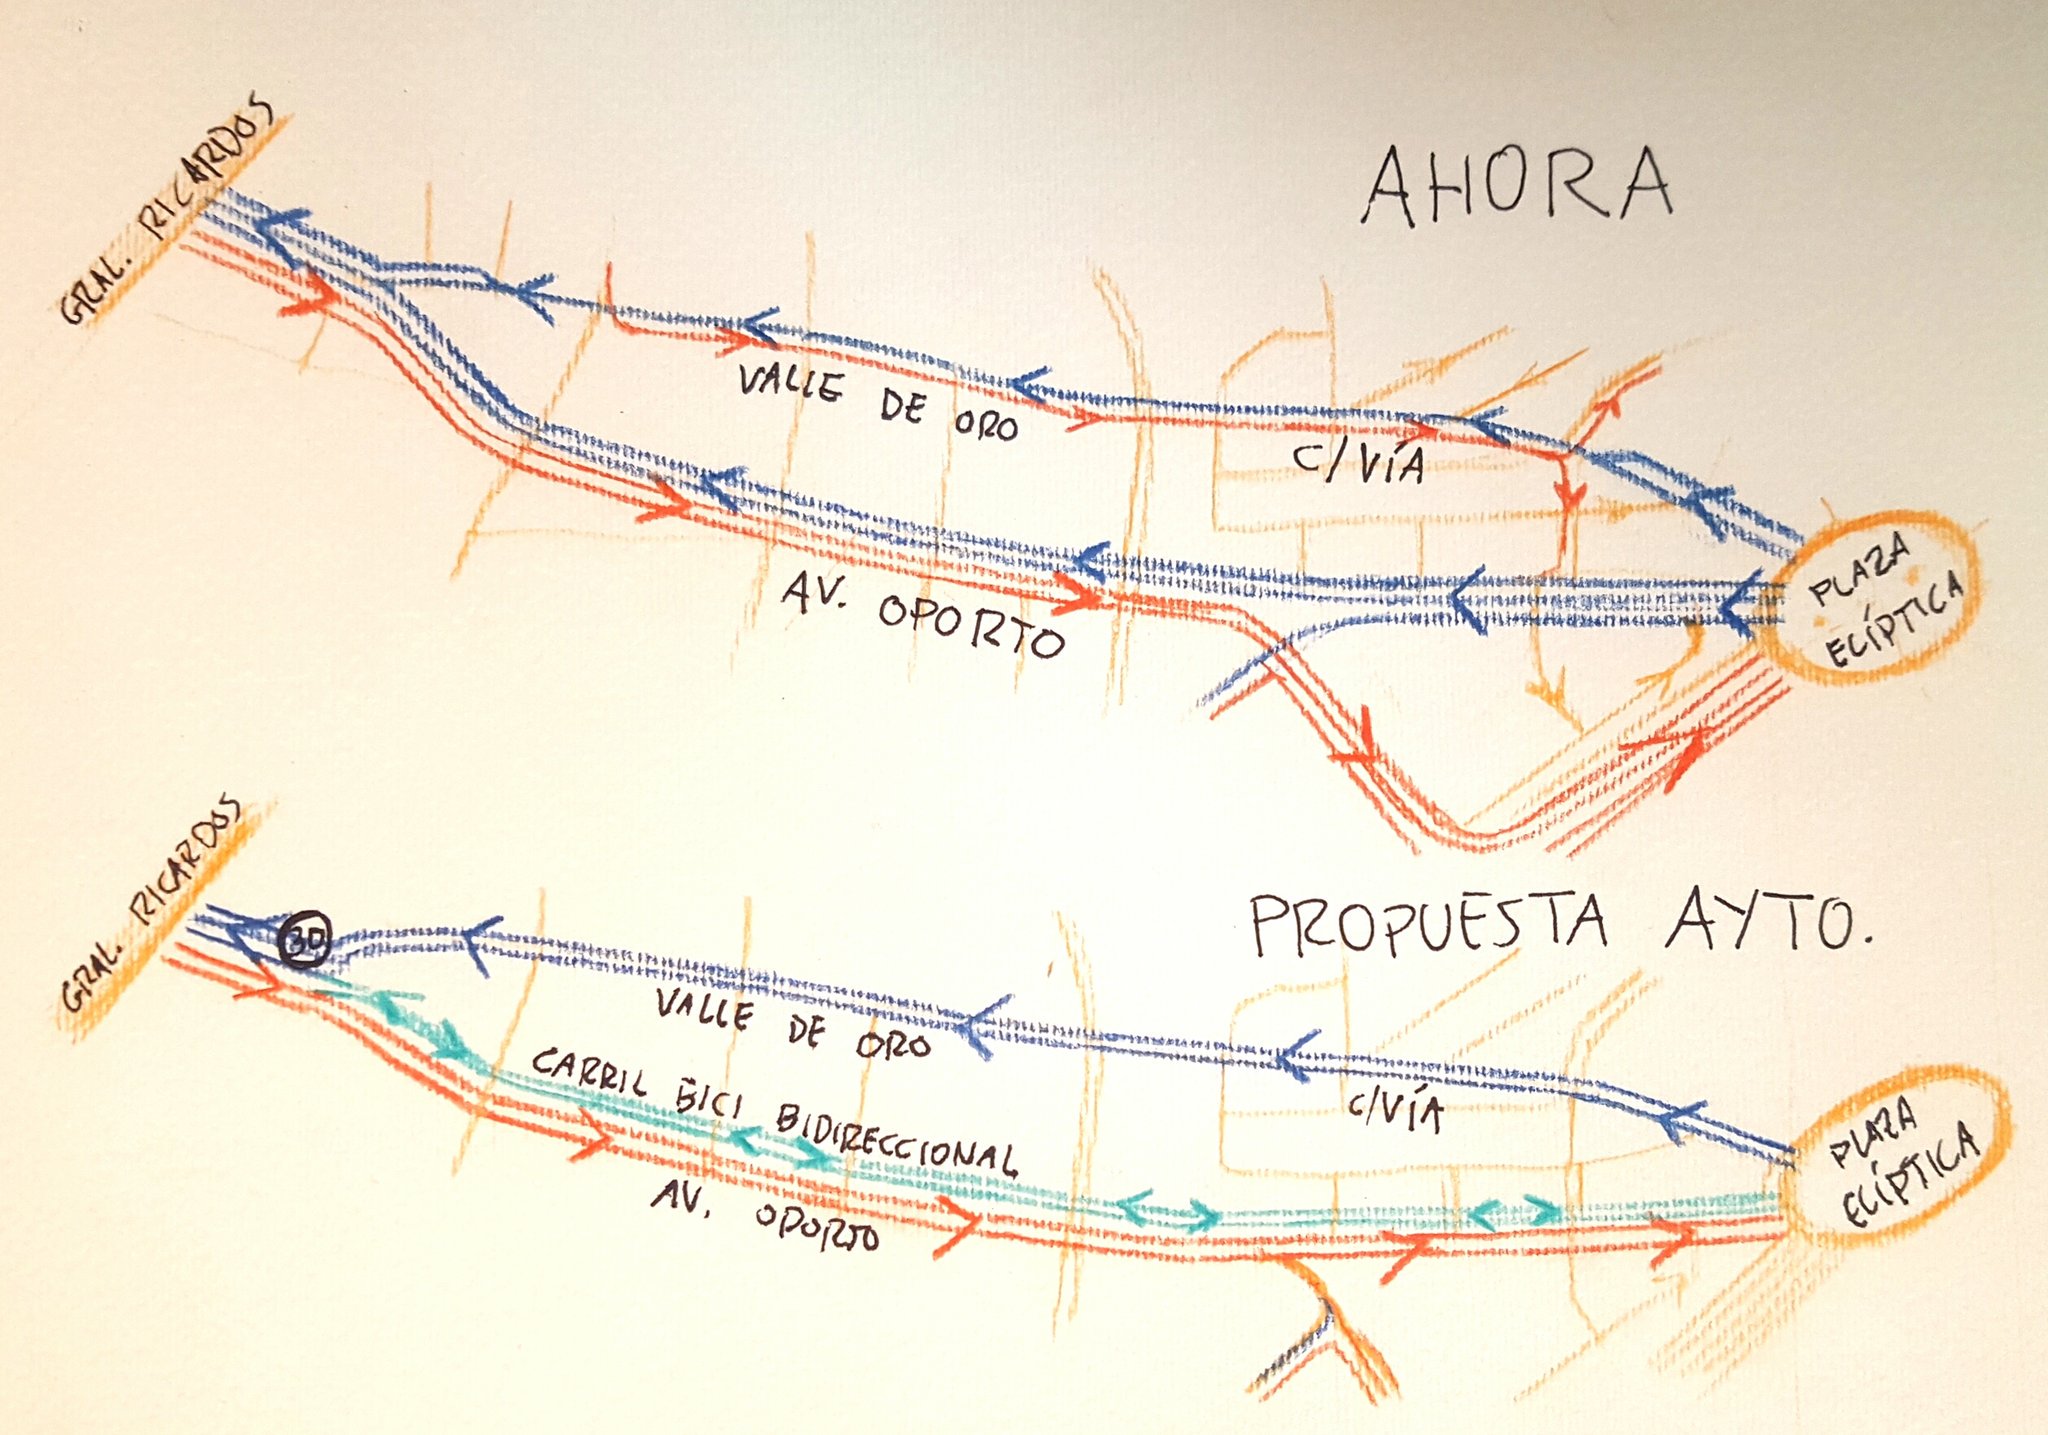 AHORA
GRAL. RICARDOS
VALLE DE ORO
C/VÍA
AV. OPORTO
PLAZA
ELÍPTICA
PROPUESTA AYTO.
GRAL. RICARDOS
30
VALLE DE ORO
C/VÍA
CARRIL BICI BIDIRECCIONAL
AV. OPORTO
PLAZA
ELÍPTICA